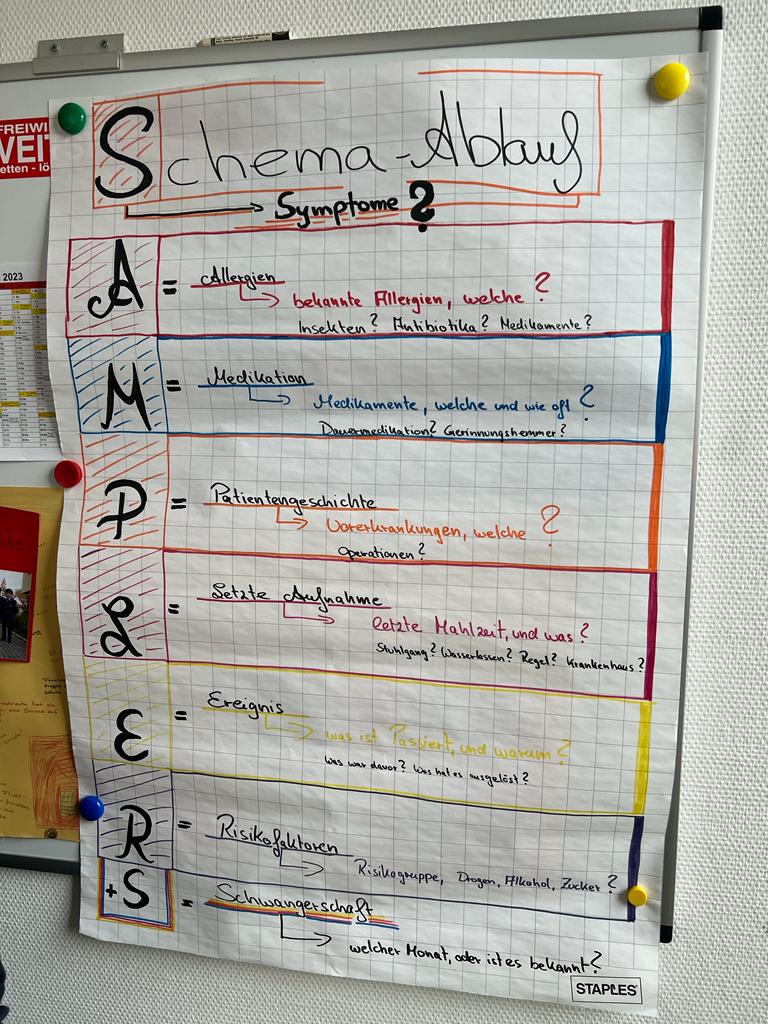 FREIWI
VEIT
etten - lö
2023
Schema-Ablauf
Symptome?
A = Allergien
bekannte Allergien, welche?
Insekten? Antibiotika? Medikamente?
M = Medikation
Medikamente, welche und wie oft?
Dauermedikation? Gerinnungshemmer?
P = Patientengeschichte
Vorerkrankungen, welche?
Operationen?
L = Letzte Aufnahme
letzte Mahlzeit, und was?
Stuhlgang? Wasserlassen? Regel? Krankenhaus?
E = Ereignis
was ist Passiert, und warum?
Was war davor? Was hat es ausgelöst?
R = Risikofaktoren
Risikogruppe, Drogen, Alkohol, Zucker?
+S = Schwangerschaft
welcher Monat, oder ist es bekannt?
STAPLES